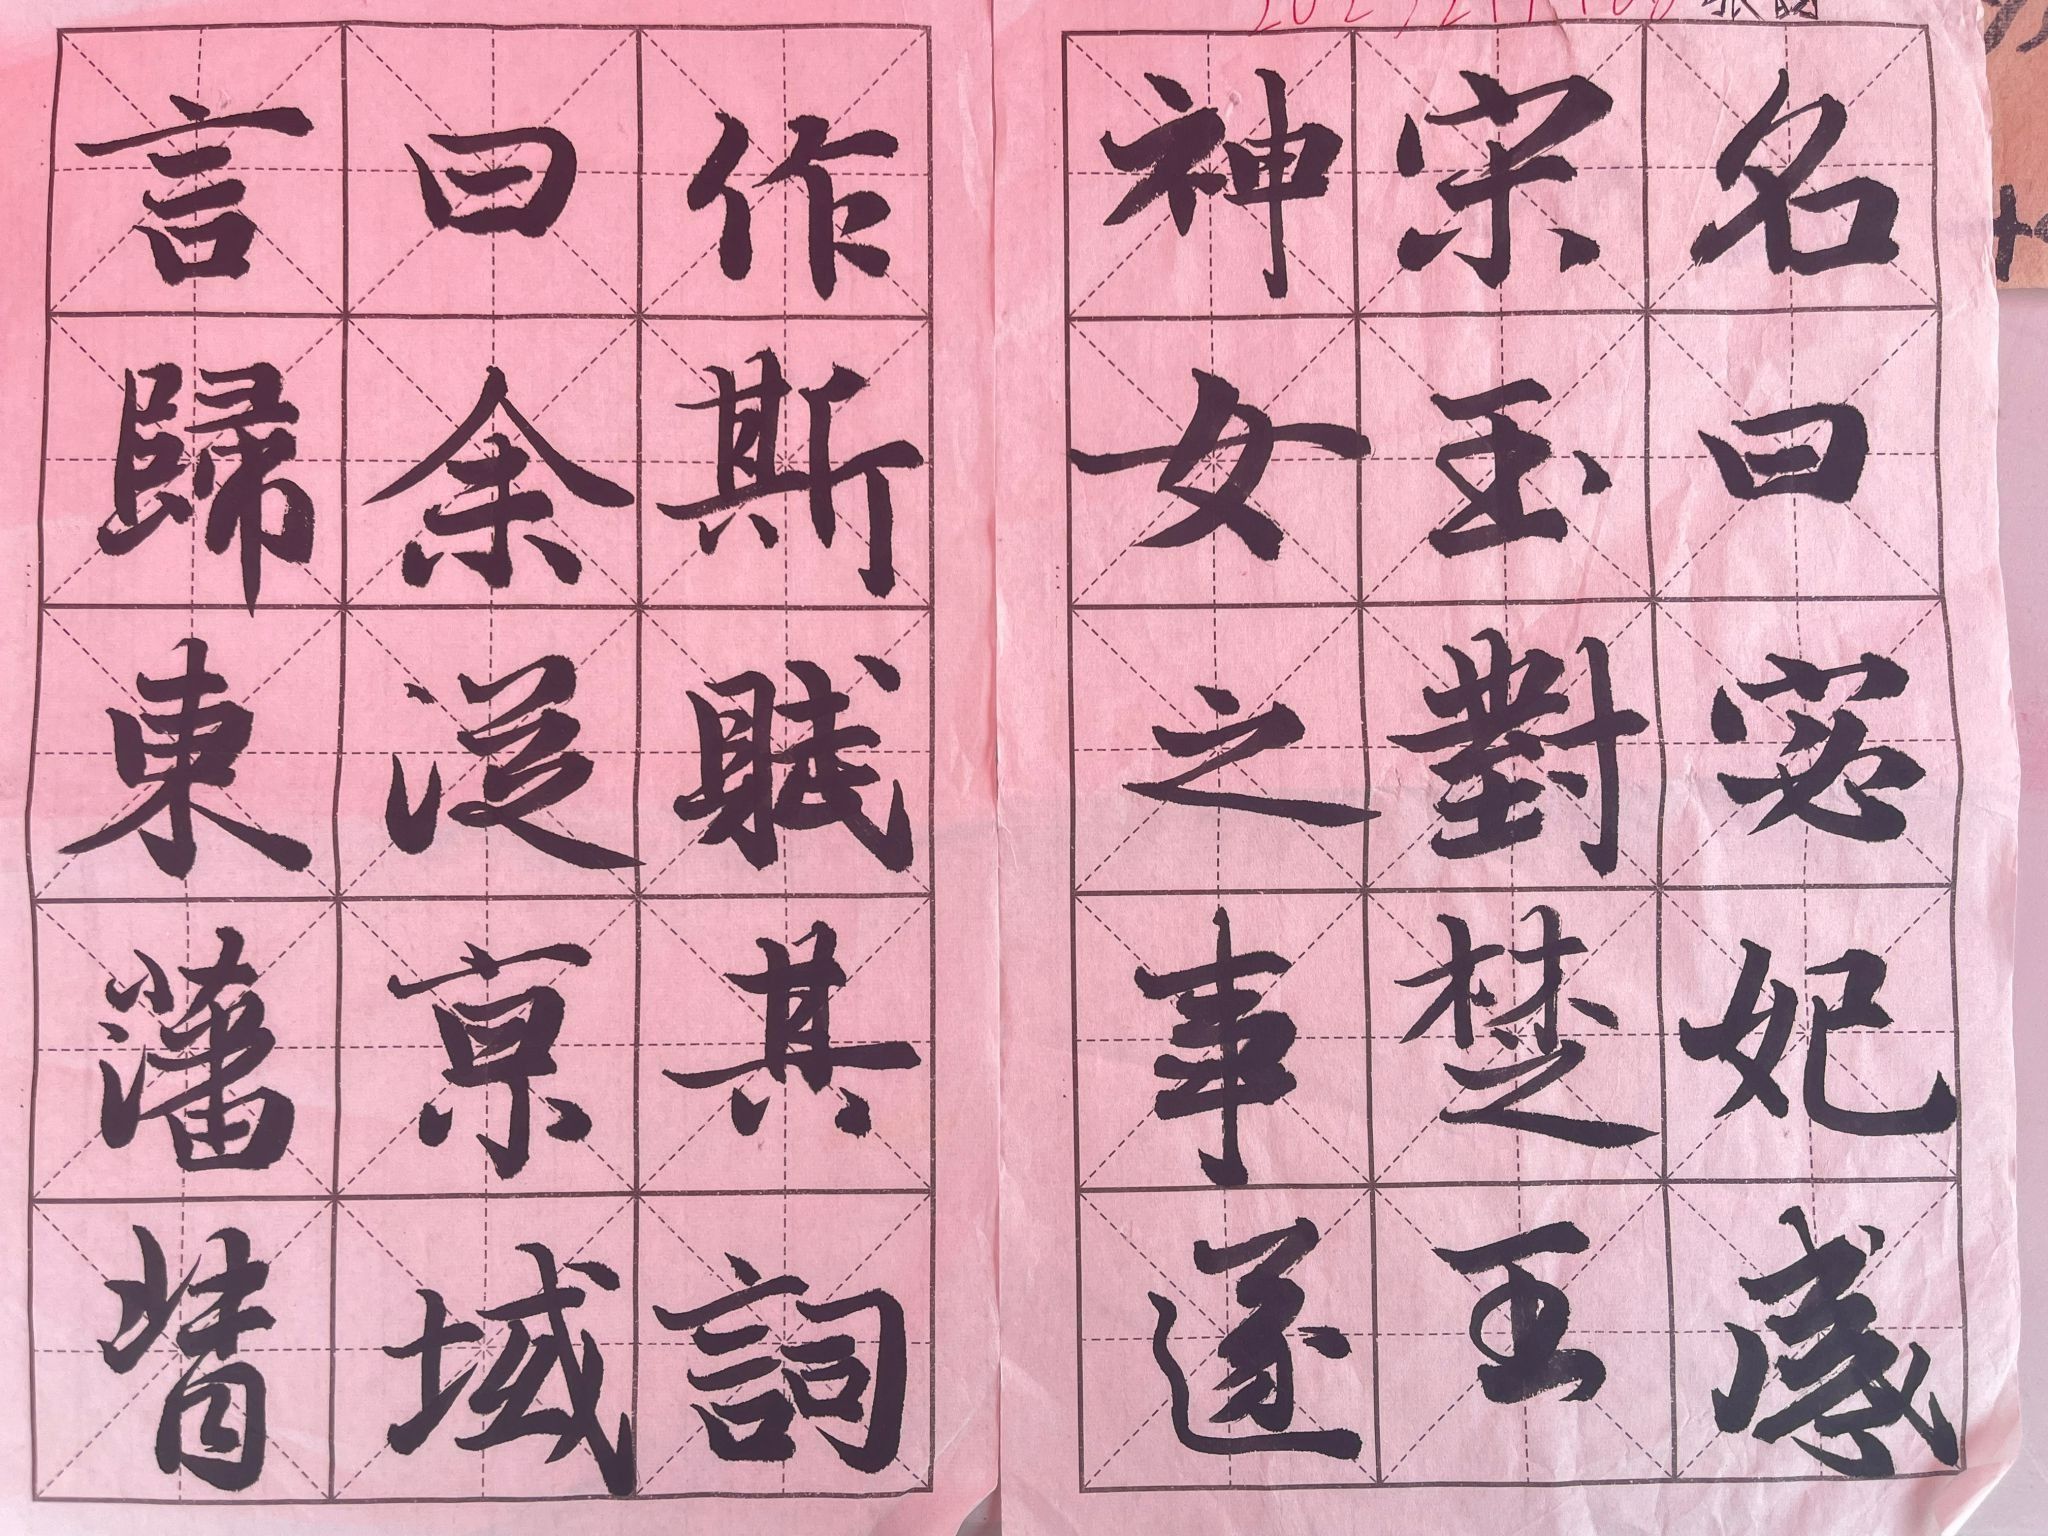 名曰宓妃感
宋玉對楚王
神女之事遂
作斯賦其詞
曰余從京域
言歸東藩背